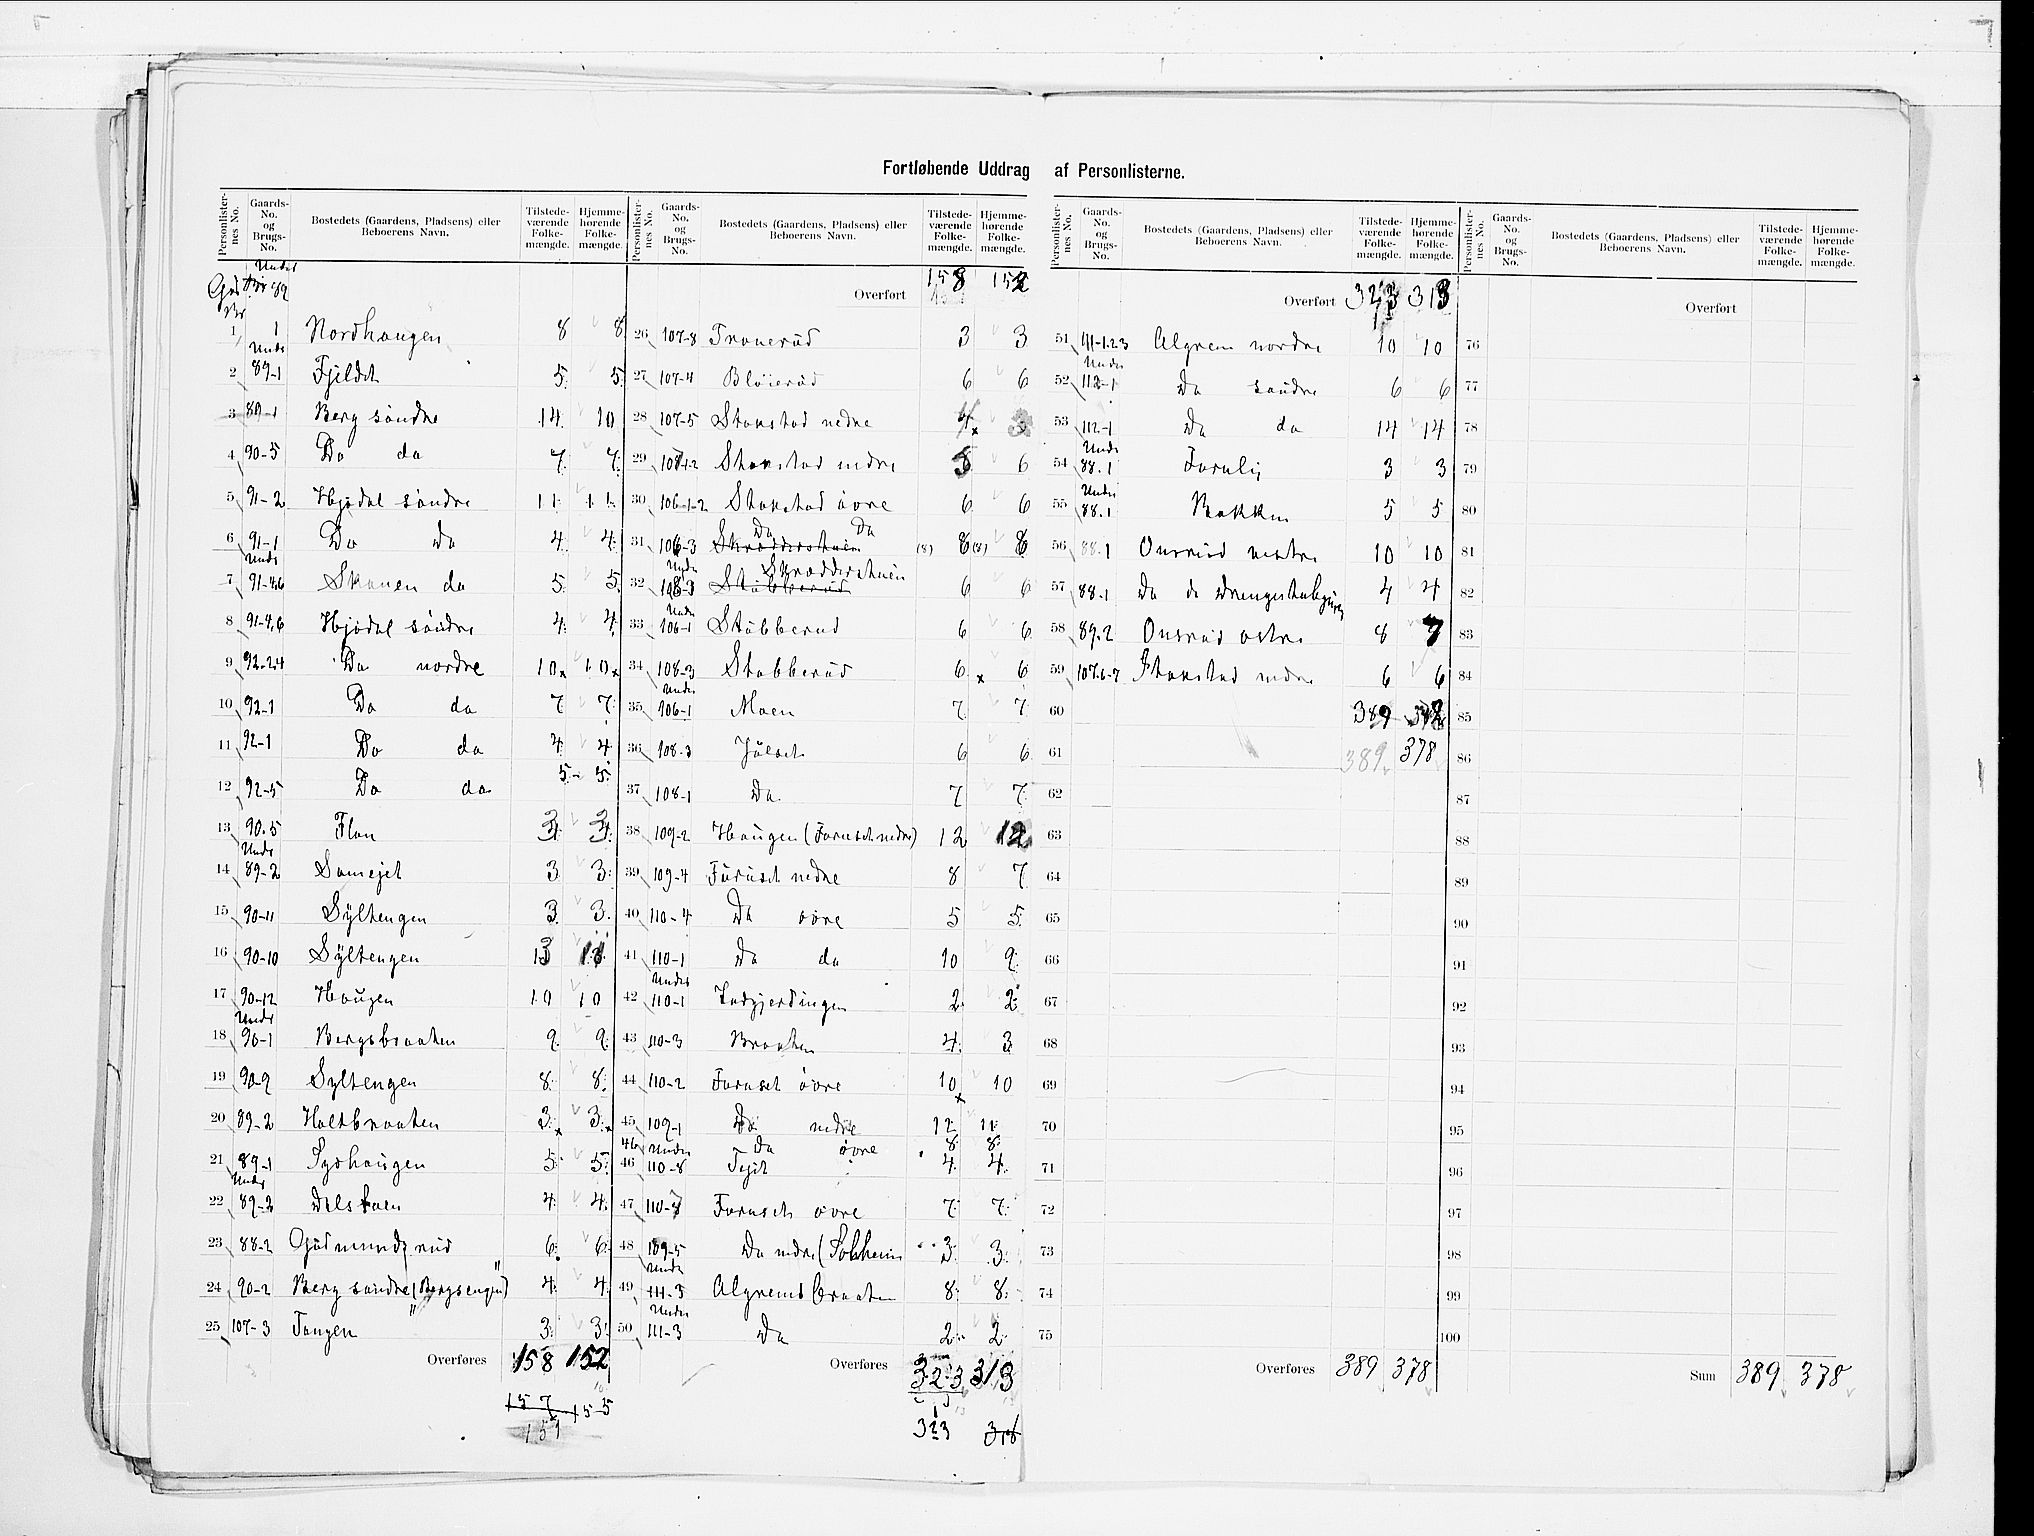 Fortløbende Uddrag af Personlisterne.
Personlister-nes No. Gaards-No. og Brugs-No. Bostedets (Gaardens, Pladsens) eller Beboerens Navn. Tilstede-værende Folke-mængde. Hjemme-hørende Folke-mængde.
Under
1 1 Nordhaugen 8 8
Under
2 89-1 Fjeldet 5 5
3 89-1 Berg söndre 14 10
4 90-5 Do do 7 7
5 91-2 Hjødal söndre 11 11
6 91-1 Do Do 4 4
Under
7 91-4,6 Skauen do 5 5
8 91-4,6 Hjødal söndre 4 4
9 92-2.4 Do nordre 10 10
10 92-1 Do do 7 7
11 92-1 Do do 4 4
12 92-5 Do do 5 5
13 90.5 Flon 3 3
Under
14 89-2 Somejet 3 3
15 90-11 Syltengen 3 3
16 90-10 Syltengen 13
17 90-12 Haugen 10 10
Under
18 90-1 Bergsbraaten 9 9
19 90-9 Syltengen 8 8
20 89-2 Holtbraaten 3 3
21 89-1 Syshaugen 5 5
Under
22 89-2 Delstuen 4 4
23 88-2 Gudmundsrud 6 6
24 90-2 Berg søndre ("Bergsengen") 4 4
25 107-3 Tangen 3 3
Overføres 158 152
157 155
157
Personlister-nes No. Gaards-No. og Brugs-No. Bostedets (Gaardens, Pladsens) eller Beboerens Navn. Tilstede-værende Folke-mængde. Hjemme-hørende Folke-mængde.
Overført 158 152
26 107-8 Tronerud 3 3
27 107-4 Bleierud 6 6
28 107-5 Stokstad nedre 4 3
29 107-1.2 Stokstad nedre 8 6
30 106-1-2 Stokstad øvre 6 6
Do Do
31 106-3 Skrædderstuen (8) 8 (8) 8
Under Skrædderstuen
32 106-3 Stubberud 6 6
Under
33 106-1 Stubberud 6 6
34 108-3 Stubberud 6 6
Under
35 106-1 Moen 7 7
36 108-3 Julset 6 6
37 108-1 Do 7 7
38 109-2 Haugen (Foruset nedre) 12 12
39 109-4 Furuset nedre 8 7
40 110-4 Do øvre 5 5
41 110-1 Do do 10 9
Under
42 110-1 Indgjerdingen 2 2
43 110-3 Braaten 4 3
44 110-2 Foruset øvre 10 10
45 109-1 Do nedre 12 11
46 Under Do øvre 8 8
46 110-8 Tejet 4 4
47 110-7 Foruset øvre 7 7
48 109-5 Do nedre (Solheim 3 3
Under
49 111-3 Algrensbraaten 8 8
Under
50 111-3 Do 2 2
Overføres 323 313
323 318
Personlister-nes No. Gaards-No. og Brugs-No. Bostedets (Gaardens, Pladsens) eller Beboerens Navn. Tilstede-værende Folke-mængde. Hjemme-hørende Folke-mængde.
Overført 323 313
51 111-1.23 Algren nordre 10 10
Under
52 112-1 Do søndre 6 6
53 112-1 Do do 14 14
Under
54 88.1 Forulij 3 3
Under
55 88.1 Bakken 5 5
56 88.1 Onsrud vestre 10 10
57 88-1 Do do Drengestubygning 4 4
58 89.2 Onsrud østre 8 7
59 107.6-7 Stokstad nedre 6 6
60 389
61 389 378
62
63
64
65
66
67
68
69
70
71
72
73
74
75
Overføres 389 378
Personlister-nes No. Gaards-No. og Brugs-No. Bostedets (Gaardens, Pladsens) eller Beboerens Navn. Tilstede-værende Folke-mængde. Hjemme-hørende Folke-mængde.
Overført
76
77
78
79
80
81
82
83
84
85
86
87
88
89
90
91
92
93
94
95
96
97
98
99
100
Sum 389 378